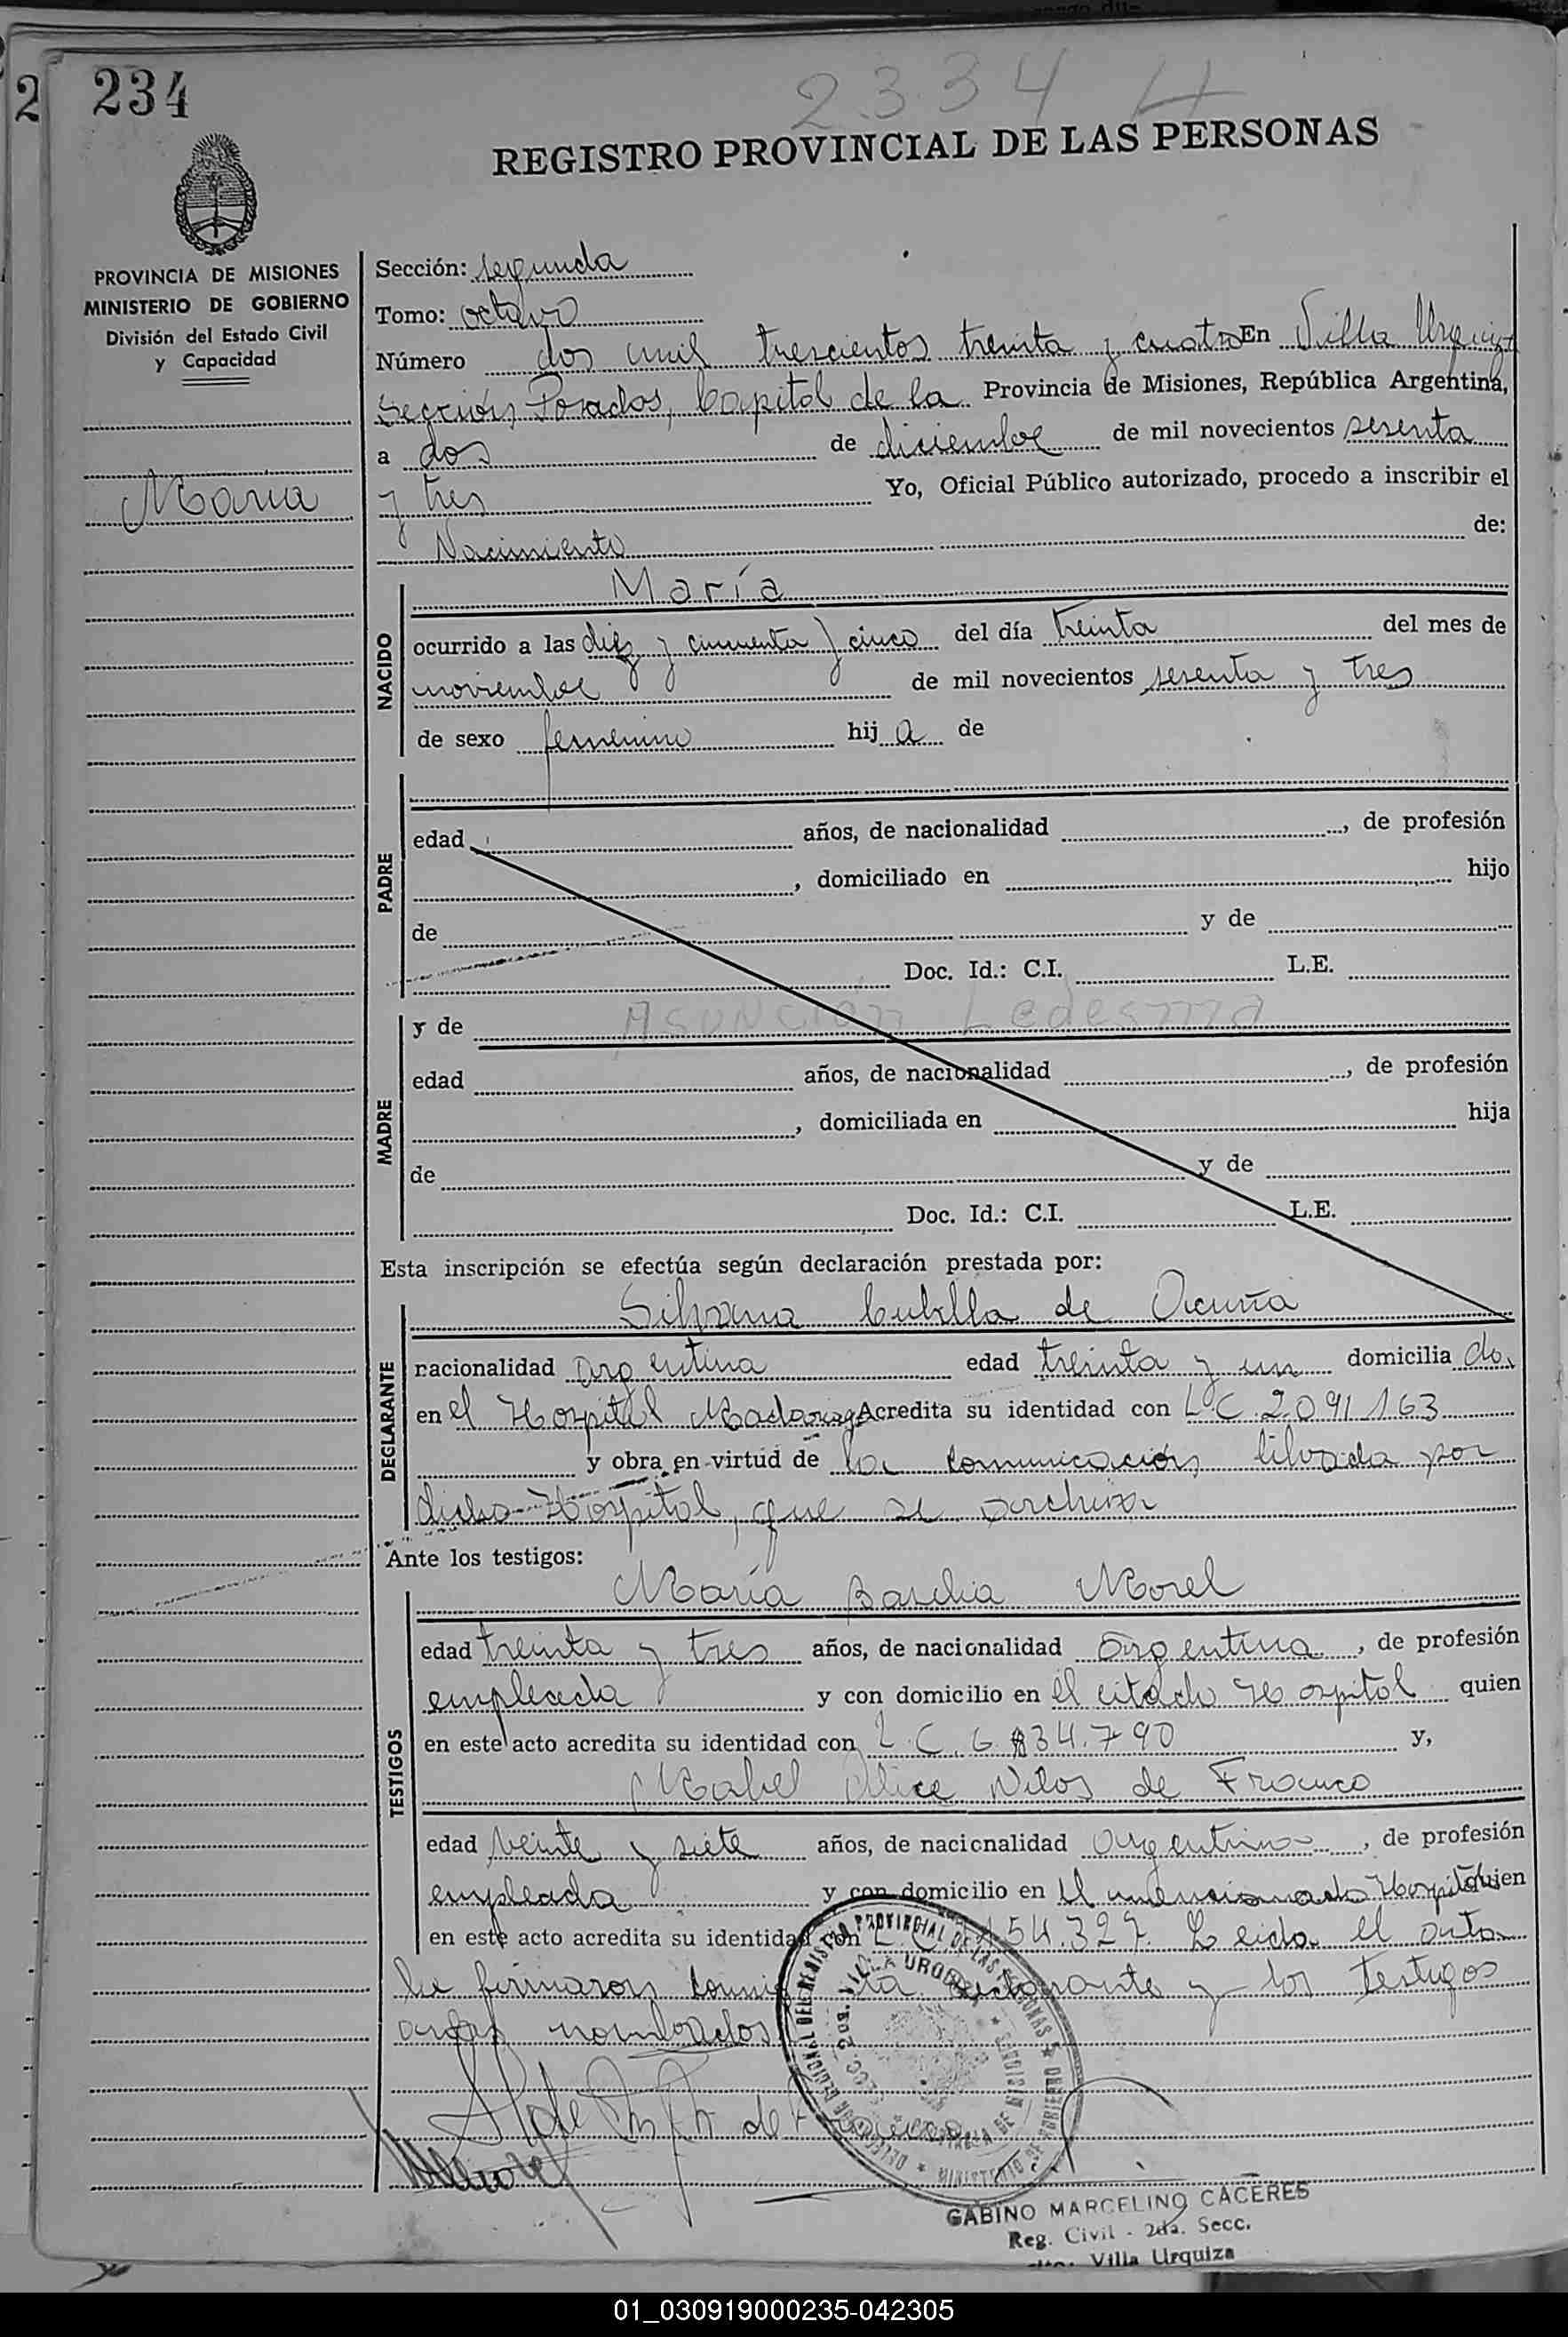 2
234
2334 H
REGISTRO PROVINCIAL DE LAS PERSONAS
PROVINCIA DE MISIONES
MINISTERIO DE GOBIERNO
División del Estado Civil
y Capacidad
María
Sección: segunda
Tomo: octavo
Número dos mil trescientos treinta y cuatro En Villa Urquiza
Sección, Posadas, Capital de la Provincia de Misiones, República Argentina,
a dos de diciembre de mil novecientos sesenta
y tres Yo, Oficial Público autorizado, procedo a inscribir el
Nacimiento de:
María
NACIDO
ocurrido a las diez y cincuenta y cinco del día treinta del mes de
noviembre de mil novecientos sesenta y tres
de sexo femenino hij a de
PADRE
edad años, de nacionalidad , de profesión
, domiciliado en hijo
de y de
Doc. Id.: C.I. L.E.
MADRE
y de Asunción Ledesma
edad años, de nacionalidad , de profesión
, domiciliada en hija
de y de
Doc. Id.: C.I. L.E.
Esta inscripción se efectúa según declaración prestada por:
Silvana Cubilla de Acuña
DECLARANTE
nacionalidad argentina edad treinta y un domicilia do
en el Hospital Madariaga Acredita su identidad con L.C. 2.091.163
y obra en virtud de la comunicación librada por
dicho Hospital, que se archiva
Ante los testigos:
TESTIGOS
María Morel
edad treinta y tres años, de nacionalidad argentina, de profesión
empleada y con domicilio en el citado Hospital quien
en este acto acredita su identidad con L.C. 6. 34.790 y,
Mabel Alice de Franco
edad veinte y siete años, de nacionalidad argentina, de profesión
empleada y con domicilio en el mencionado Hospital quien
en este acto acredita su identidad con L.C. 54.327. Leida el acta
la firmaron conmigo la declarante y los testigos
nombrados
DELEGACION REGIONAL DEL REGISTRO PROVINCIAL DE LAS PERSONAS
SECC. 2da. VILLA URQUIZA
MINISTERIO DE GOBIERNO
PROVINCIA DE MISIONES
GABINO MARCELINO CACERES
Reg. Civil - 2da. Secc.
Villa Urquiza
01_030919000235-042305